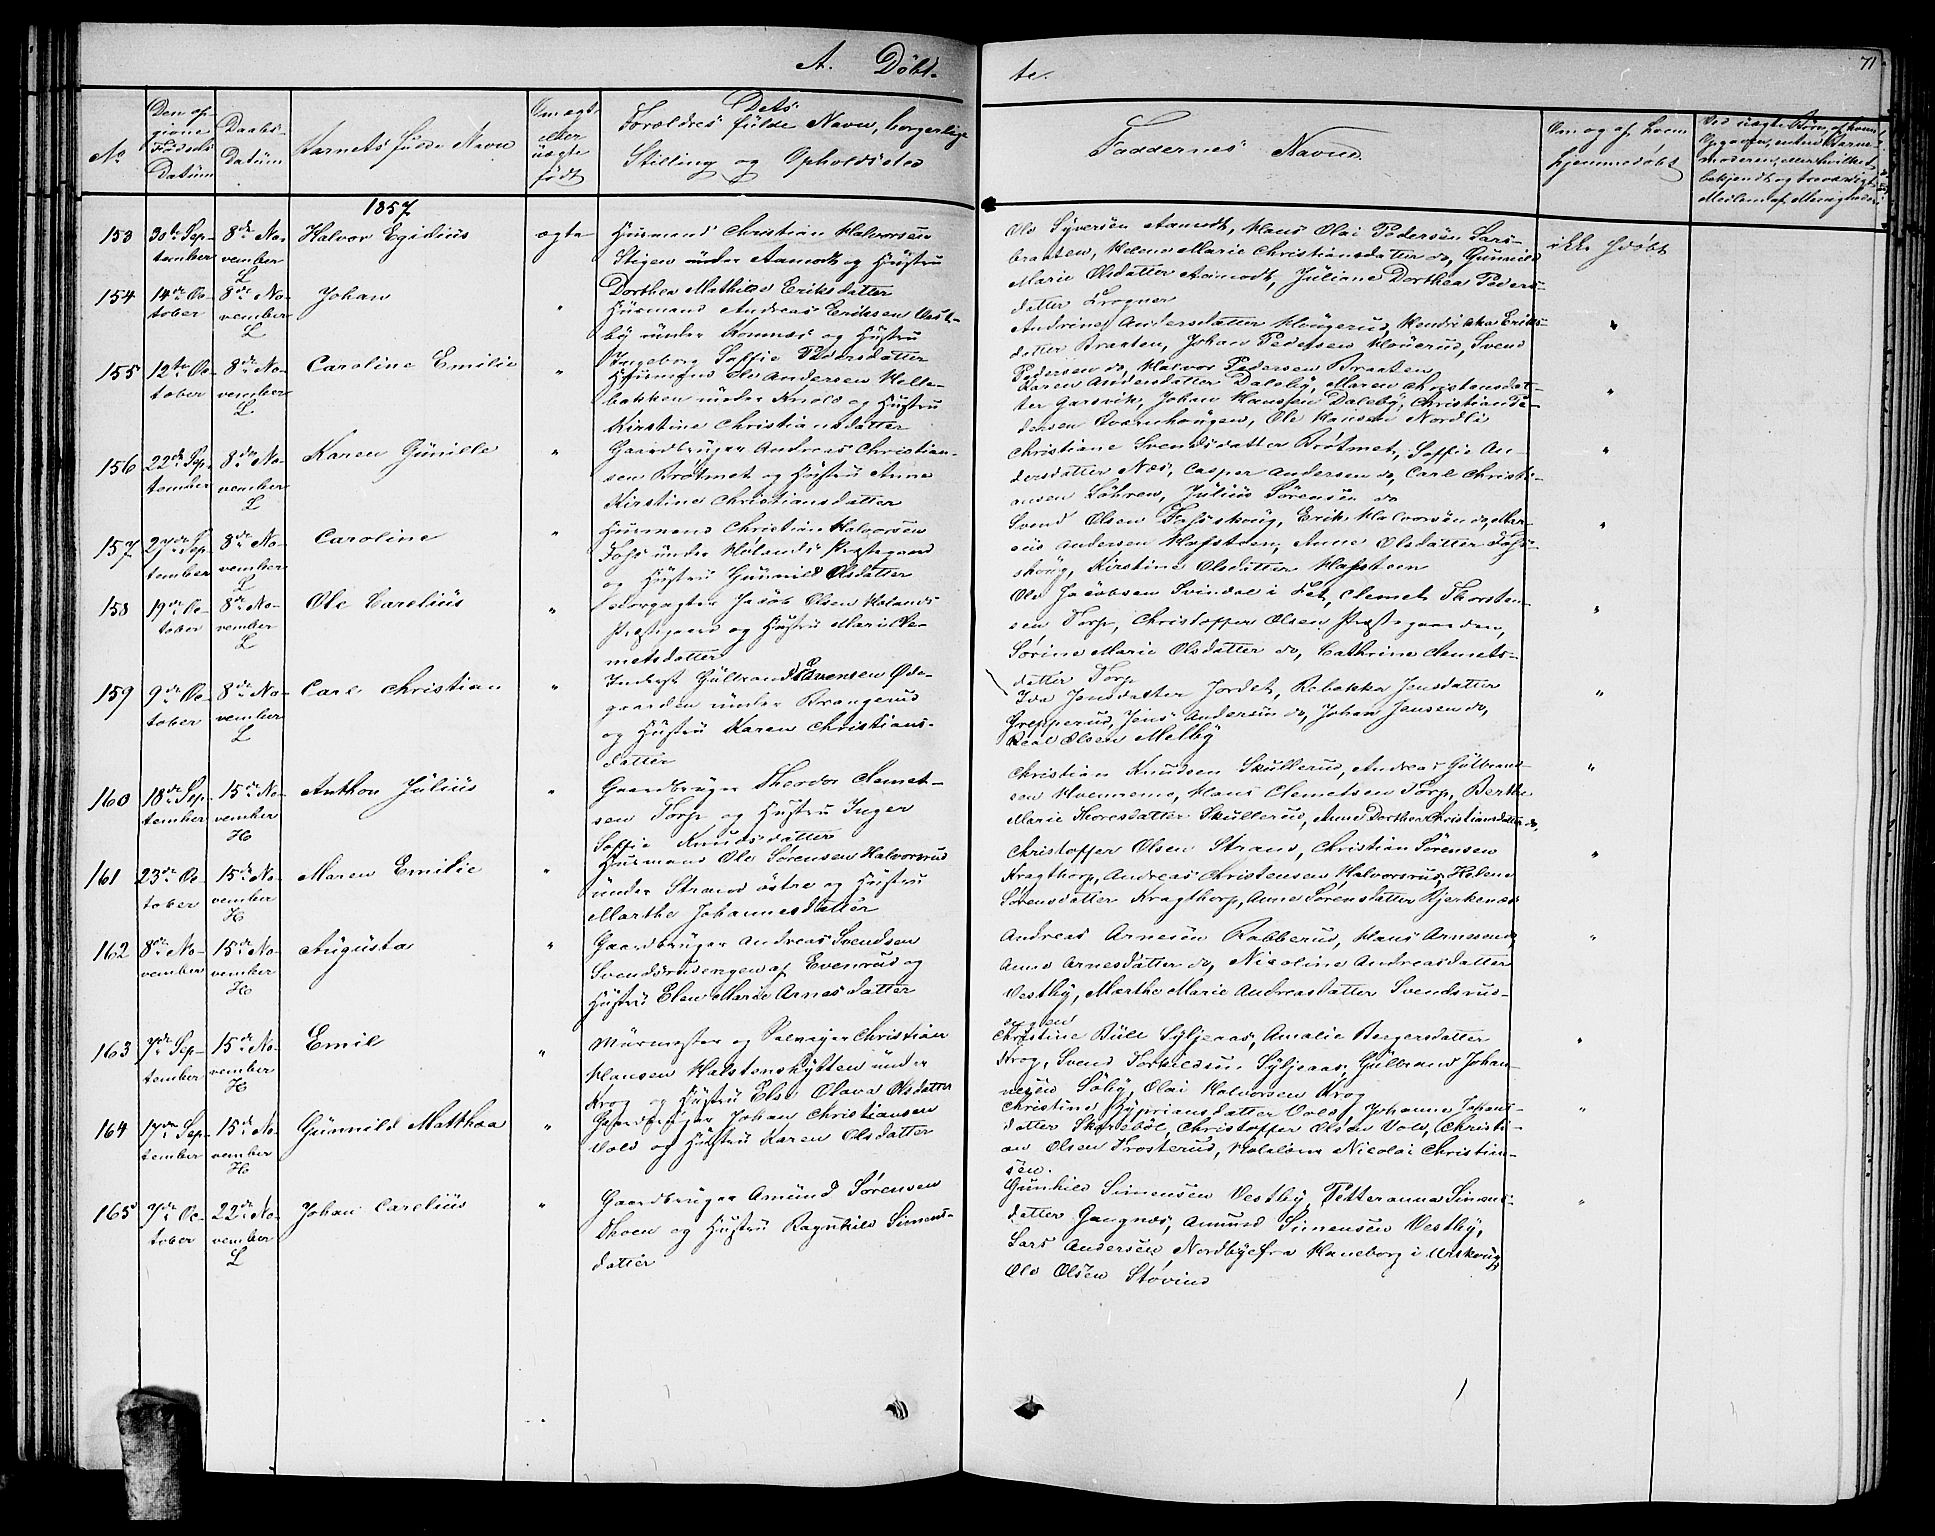 A. Döbte. 71
No
Den opgivne Fødsels Datum
Daabs-Datum
Barnets fulde Navn
Om ægte eller uægte født
Dets Forældres fulde Navn, borgerlige Stilling og Opholdssted
Faddernes Navne
Om og af hvem hjemmedøbt
1857
153 30te September 8de November L Halvor Egidius ægte
Huusmand Christian Halvorsen
Stijen under Aamodt og Hustru
Dorthea Mathilde Eriksdatter
Ole Syversen Aamodt, Hans Olai Pedersen Lars-
braaten, Helene Marie Christiansdatter do, Gunnild
Marie Olsdatter Aamodt, Juliane Dorthea Peders-
datter Krogner
ikke hdøbt
154 14de October 8de November L Johan "
Huusmand Andreas Eriksen Vest-
by under Komnæs og Hustru
Ingeborg Soffie Pedersdatter
Andrine Andersdatter Hougerud, Hendrikka Eriks-
datter Braaten, Johan Pedersen Houerud, Svend
Pedersen do, Halvor Pedersen Braaten
"
155 12te October 8de November L Caroline Emilie "
Huusmand Ole Andersen Holte-
bakken under Knold og Hustru
Kirstine Christiansdatter
Karen Andersdatter Dalsby, Maren Christensdat-
ter Garsvik, Johan Hanssen Daleby, Christian Pe-
dersen Qværnhaugen, Ole Hansen Nordli
"
156 22de September 8de November L Karen Gunille "
Gaardbruger Andreas Christian-
sen Brøtmet og Hustru Anne
Kirstine Christiansdatter
Christiane Svendsdatter Brøtmet, Soffie An-
dersdatter Næs, Casper Andersen do, Carl Christi-
ansen Løhren, Julius Sørensen do
"
157 27de September 8de November L Caroline "
Huusmand Christian Halvorsen
Foss under Hølands Præstegaard
og Hustru Gunnild Olsdatter
Svend Olsen Fossskoug, Erik Halvorsen do, Mar-
ius Andersen Hafsteen, Anne Olsdatter Foss-
skoug, Kirstine Olsdatter Hafsteen
"
158 19de October 8de November L Ole Carelius "
Forpagter Jacob Olsen Hølands
Præstegaard og Hustru Mari Cle-
metsdatter
Ole Jacobsen Svindal i Fet, Clemet Thorsten-
sen Torp, Christoffer Olsen Præstegaarden,
Sørine Marie Olsdatter do, Cathrine Clemets-
datter Torp
"
159 9de October 8de November L Carl Christian "
Inderst Gulbrand Evensen Øde-
gaarden under Brangerud
og Hustru Karen Christians-
datter
Ida Jensdatter Jordet, Rebekka Jensdatter
Grepperud, Jens Andersen do, Johan Jensen do,
Carl Olsen Melby
"
160 18de September 15de November H Anthon Julius "
Gaardbruger Theodor Clemet-
sen Torp og Hustru Inger
Soffie Knudsdatter
Christian Knudsen Skullerud, Andreas Gulbrand-
sen Hvenremo, Hans Clemetsen Torp, Berthe
Marie Thoresdatter Skullerud, Anne Dorthea Christiansdatter do,
"
161 23de October 15de November H Maren Emilie "
Huusmand Ole Sørensen Halvorsrud
under Strand østre og Hustru
Marthe Johannesdatter
Christoffer Olsen Strand, Christian Sørensen
Kragthorp, Andreas Christensen Halvorsrud, Helene
Sørensdatter Kragthorp, Anne Sørensdatter Bjerkenæs
"
162 8de November 15de November H Augusta "
Gaardbruger Andreas Svendsen
Svendsrudengen af Evenrud og
Hustru Elen Marie Arnesdatter
Andreas Arnesen Rabberud, Hans Arnesen do,
Anne Arnesdatter do, Nicoline Andreasdatter
Vestby, Marthe Marie Andreasdatter Svendsrud-
engen
"
163 7de September 15de November H Emil "
Muurmester og Selveier Christian
Hansen Halstenshytten under
Krog og Hustru Else Olava Olsdatter
Christine Bull Syljeaas, Amalie Bergersdatter
Krog, Svend Torkildsen Syljeaas, Gulbrand Johan-
nesen Søby, Olai Halvorsen Krog
"
164 17de September 15de November H Gunnild Matthea "
Gaardbruger Johan Christiansen
Vold og Hustru Karen Olsdatter
Christine Cypriansdatter Vold, Johanne Johans-
datter Skarebøl, Christoffer Olsen Vold, Christi-
an Olsen Frosterud, Nicolai Christian-
sen.
"
165 7de October 22de November L Johan Carelius "
Gaardbruger Amund Sørensen
Thoen og Hustru Ragnhild Simens-
datter
Gunhild Simensen Vestby, Petteranna Simens-
datter Gangnæs, Amund Simensen Vestby,
Lars Andersen Nordbye fra Haneborg i Urskoug,
Ole Olsen Støvind
"